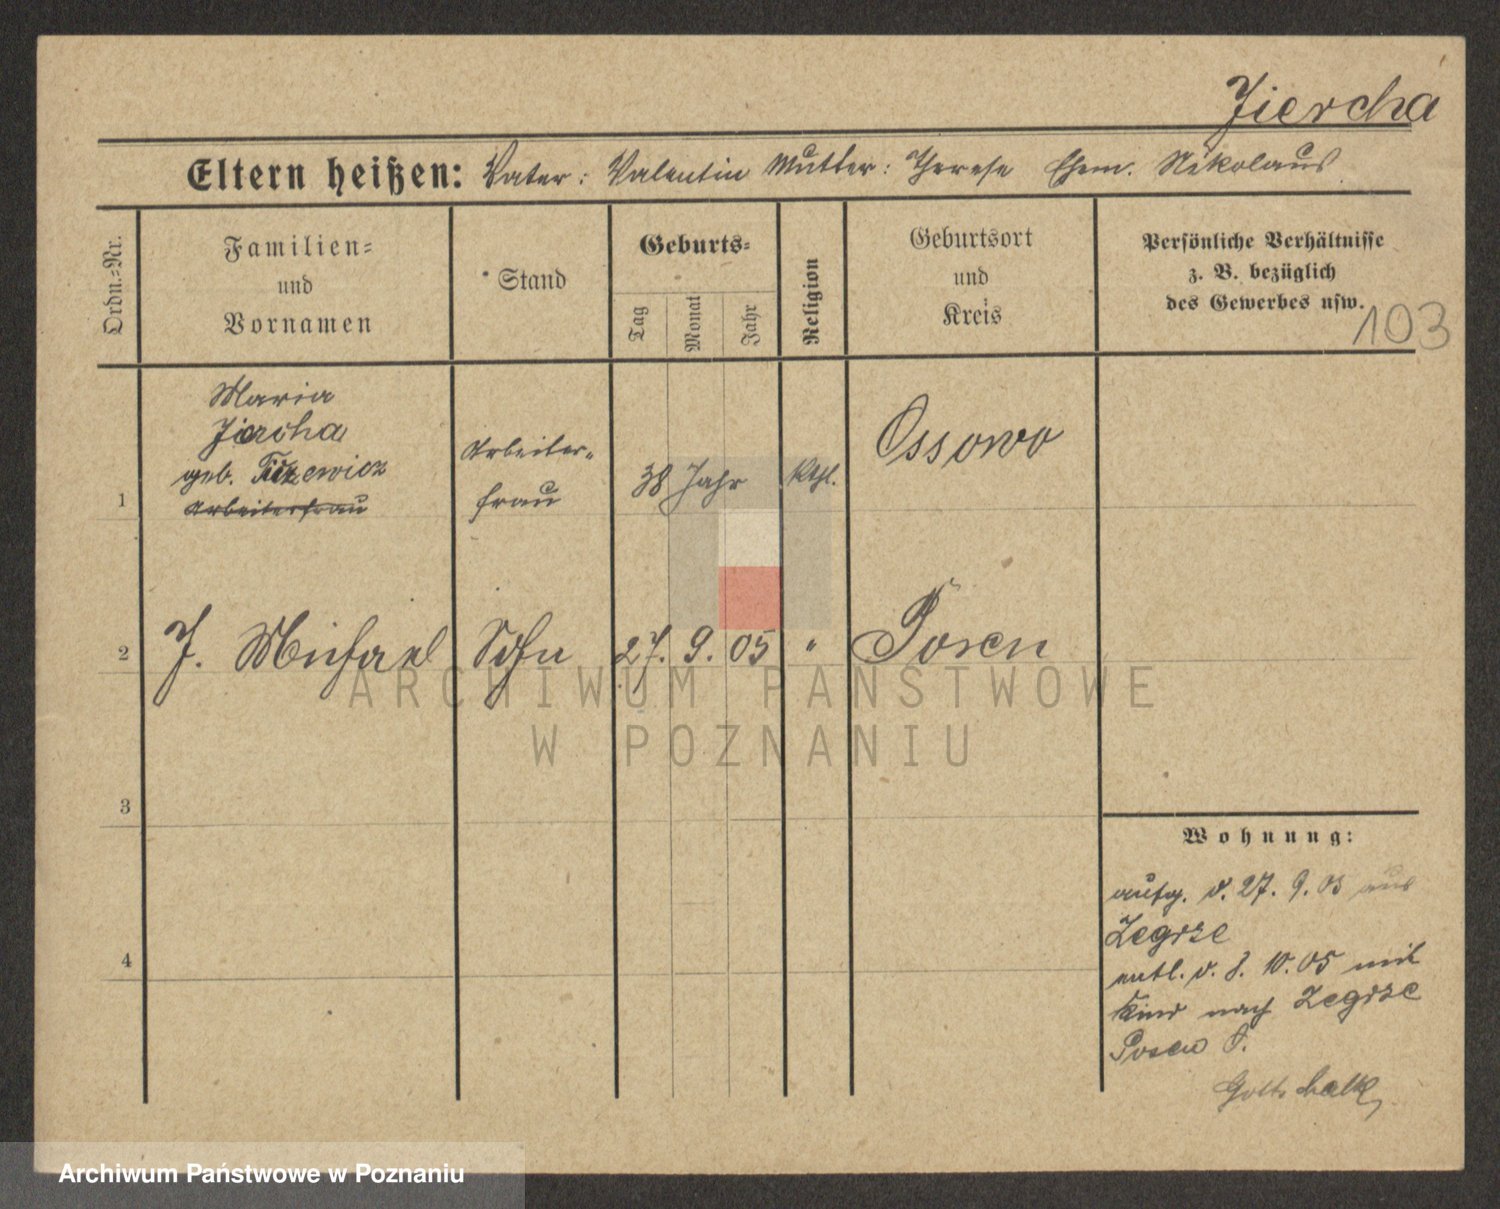 Jiercha
Eltern heißen: Vater: Valentin Mutter: Therese Ehem. Nikolaus
Ordn.-Nr.
Familien- und Vornamen
Stand
Geburts-
Tag
Monat
Jahr
Religion
Geburtsort und Kreis
Persönliche Verhältnisse
z. B. bezüglich
des Gewerbes usw.
103
Maria
Jiercha
geb.
Arbeiterfrau
1
Arbeiter-
frau
38 Jahr
kthl.
Ossowo
2
J. Michael
Sohn
27. 9. 05
"
Posen
3
4
Wohnung:
aufg. d. 27. 9. 05 aus
Zegrze
entl. d. 8. 10. 05 mit
Kind nach Zegrze
Posen O.
Gottschalk
ARCHIWUM PAŃSTWOWE
W POZNANIU
Archiwum Państwowe w Poznaniu